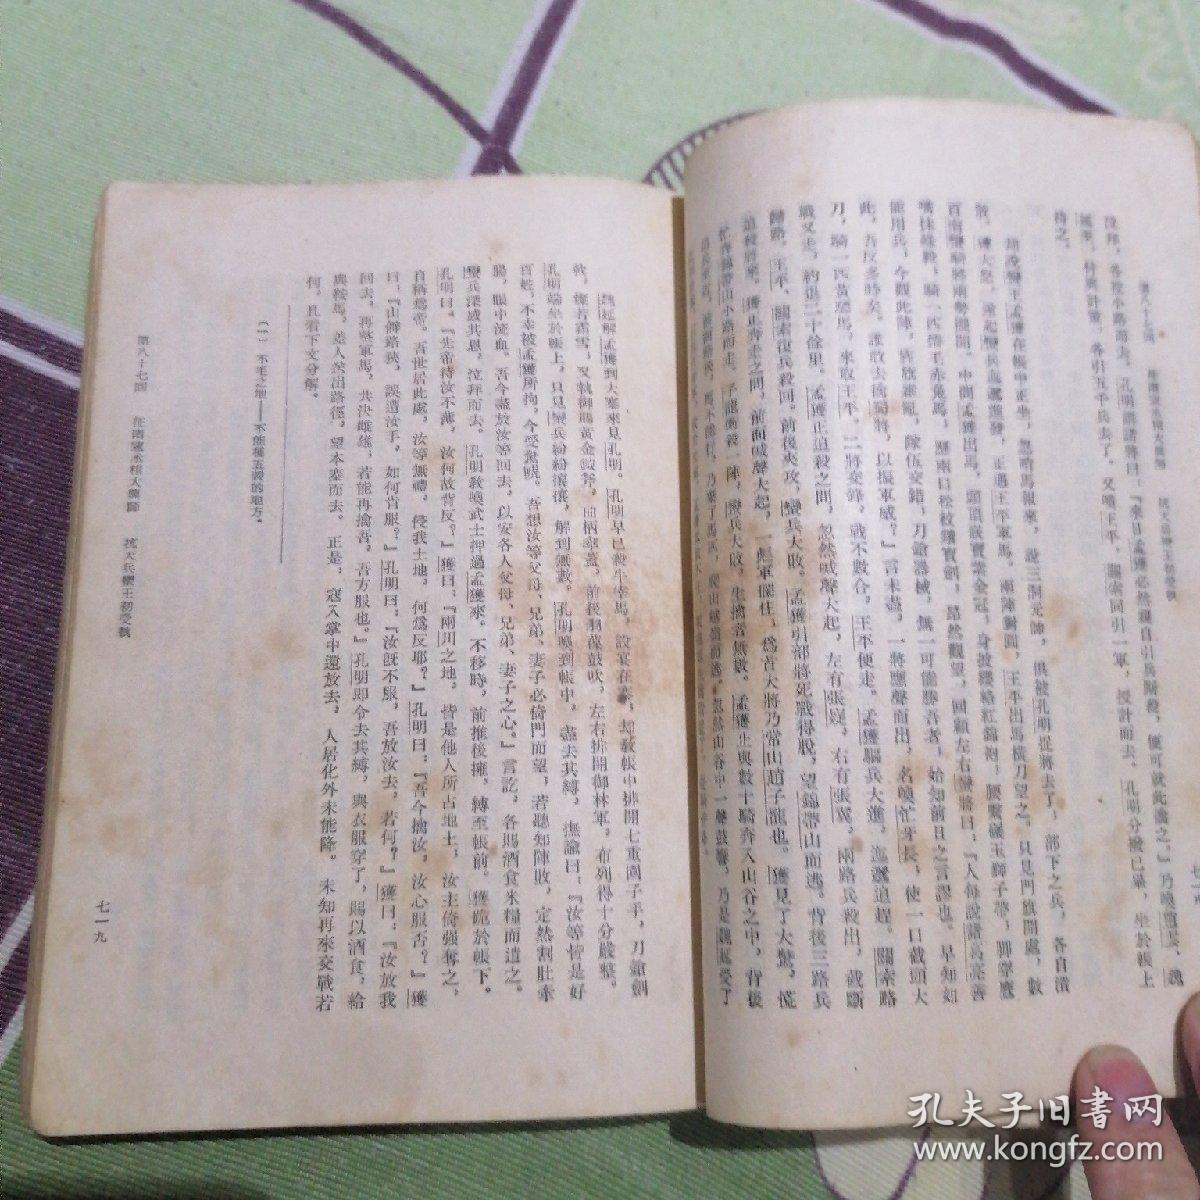 第八十七回
沒邦,各從小路而去。孔明謂諸將曰:『來日孟獲必然親自引兵廝殺,便可就此擒之。』乃喚趙雲、魏
延至,付與計策,各引五千兵去了。又喚王平、關索同引一軍,授計而去。孔明分撥已畢,坐於帳上
待之。
却說蠻王孟獲在帳中正坐,忽哨馬報來,說三洞元帥,俱被孔明捉將去了,部下之兵,各自潰
散。獲大怒,遂起蠻兵迤邐進發,正遇王平軍馬。兩陣對圓,王平出馬橫刀望之,只見門旗開處,數
百南蠻騎將兩勢擺開。中間孟獲出馬,頭頂嵌寶紫金冠,身披纓絡紅錦袍,腰繫碾玉獅子帶,脚穿鷹
嘴抹綠靴,騎一匹捲毛赤兔馬,懸兩口松紋鑲寶劍,昂然觀望,回顧左右蠻將曰:『人每說諸葛亮善
能用兵,今觀此陣,旌旗雜亂,隊伍交錯,刀鎗器械,無一可能勝吾者,始知前日之言謬也。早知如
此,吾反多時矣。誰敢去擒蜀將,以振軍威?』言未盡,一將應聲而出,名喚忙牙長,使一口截頭大
刀,騎一匹黃驃馬,來取王平。二將交鋒,戰不數合,王平便走。孟獲驅兵大進,迤邐追趕。關索略
戰又走,約退二十餘里。孟獲正追殺之間,忽然喊聲大起,左有張嶷,右有張翼,兩路兵殺出,截斷
歸路。王平、關索復兵殺回。前後夾攻,蠻兵大敗。孟獲引部將死戰得脫,望錦帶山而逃。背後三路兵
追殺將來。獲正奔走之間,前面喊聲大起,一彪軍攔住,爲首大將乃常山趙子龍也。獲見了大驚,慌
忙奔錦帶山小路而走。子龍衝殺一陣,蠻兵大敗,生擒者無數。孟獲止與數十騎奔入山谷之中,背後
追兵至近,前面路狹,馬不能行,乃棄了馬匹,爬山越嶺而逃。忽然山谷中一聲鼓響,乃是魏延受了
魏延解孟獲到大寨來見孔明。孔明早已殺牛宰馬,設宴在寨,却敎帳中排開七重圍子手,刀鎗劍
戟,燦若霜雪,又執御賜黃金鉞斧,曲柄傘蓋,前後羽葆鼓吹,左右排開御林軍,布列得十分嚴整。
孔明端坐於帳上,只見蠻兵紛紛攘攘,解到無數。孔明喚到帳中,盡去其縛,撫諭曰:『汝等皆是好
百姓,不幸被孟獲所拘,今受驚唬。吾想汝等父母、兄弟、妻子必倚門而望,若聽知陣敗,定然割肚牽
腸,眼中流血。吾今盡放汝等回去,以安各人父母、兄弟、妻子之心。』言訖,各賜酒食米糧而遣之。
蠻兵深感其恩,泣拜而去。孔明敎喚武士押過孟獲來。不移時,前推後擁,縛至帳前。獲跪於帳下。
孔明曰:『先帝待汝不薄,汝何故背反?』獲曰:『兩川之地,皆是他人所占地土,汝主倚强奪之,
自稱爲帝。吾世居此處,汝等無禮,侵我土地,何爲反耶?』孔明曰:『吾今擒汝,汝心服否?』獲
曰:『山僻路狹,誤遭汝手,如何肯服?』孔明曰:『汝旣不服,吾放汝去,若何?』獲曰:『汝放我
回去,再整軍馬,共決雌雄,若能再擒吾,吾方服也。』孔明卽令去其縛,與衣服穿了,賜以酒食,給
與鞍馬,差人送出路徑,望本寨而去。正是:寇入掌中還放去,人居化外未能降。未知再來交戰若
何,且看下文分解。
(一) 不毛之地——不能種五穀的地方。
第八十七回 征南寇丞相大興師 抗天兵蠻王初受執
七一九
孔夫子旧書网
www.kongfz.com